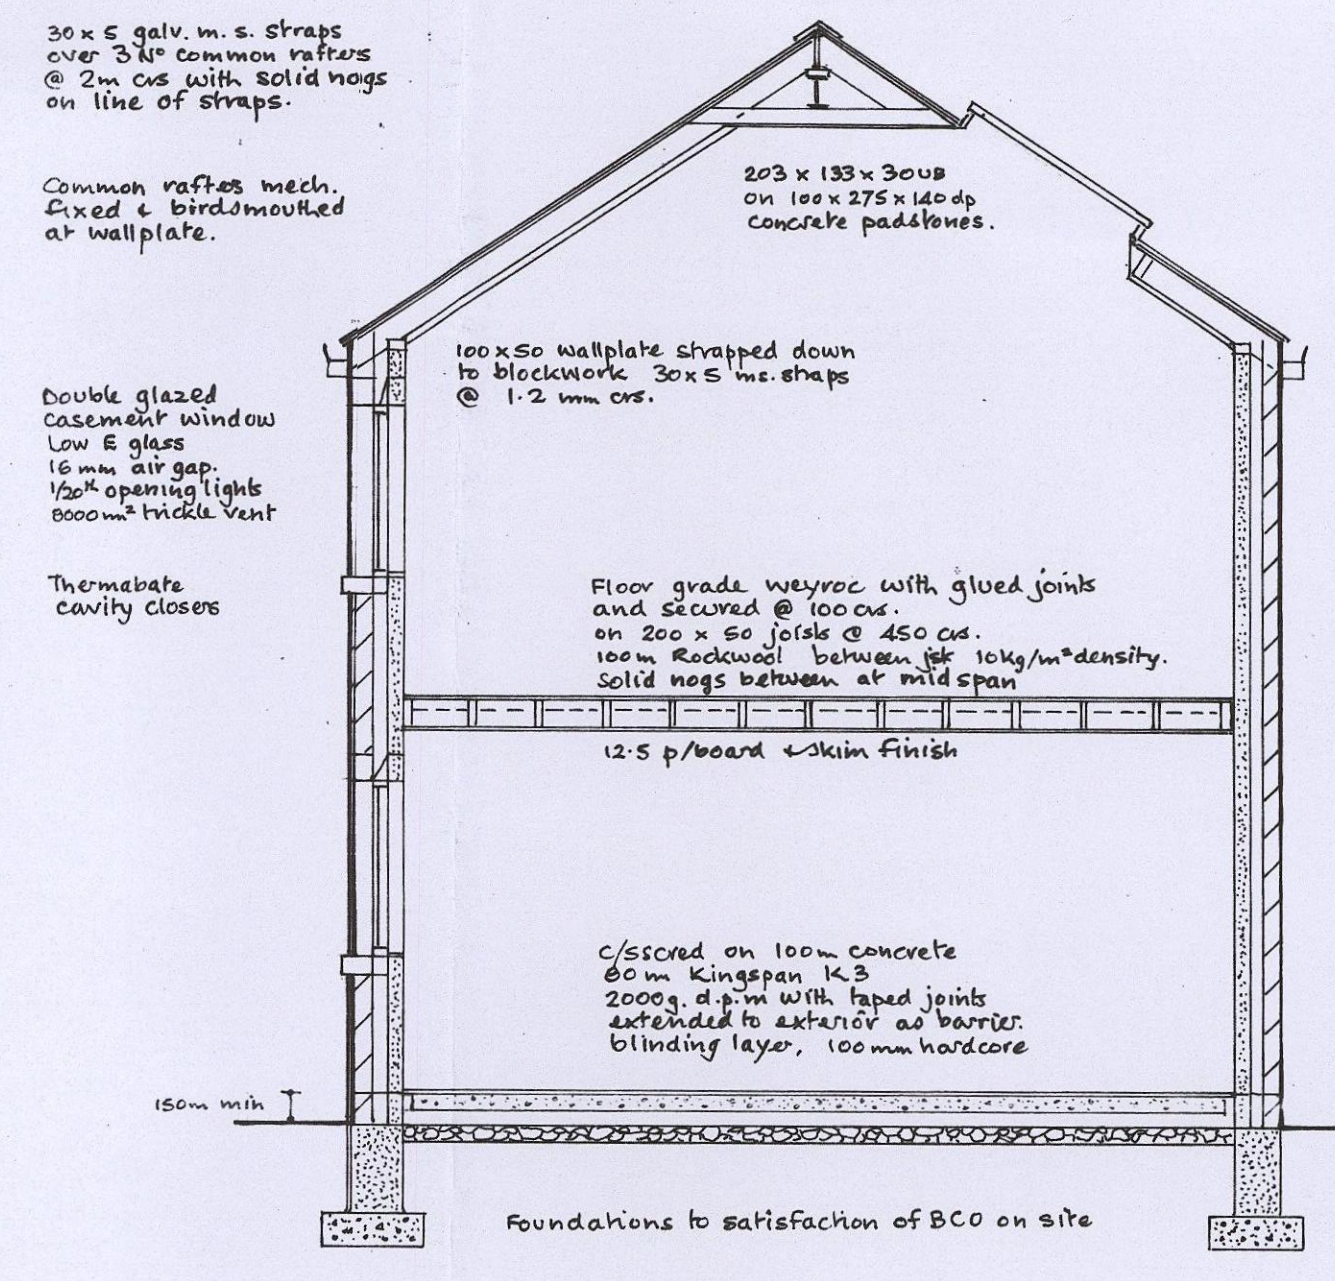 30 x 5 galv. m. s. straps
over 3 No common rafters
@ 2m crs with solid nogs
on line of straps.
Common raftes mech.
fixed & birdsmouthed
at wallplate.
203 x 133 x 30UB
on 100 x 275 x 140 dp
concrete padstones.
100 x 50 wallplate strapped down
to blockwork 30x5 ms. straps
@ 1.2 mm crs.
Double glazed
casement window
Low E glass
16 mm air gap.
1/20th opening lights
8000 mm² trickle vent
Thermabate
cavity closers
Floor grade weyroc with glued joints
and secured @ 100 crs.
on 200 x 50 joists @ 450 crs.
100m Rockwool between jst 10kg/m³ density.
solid nogs between at midspan
12.5 p/board & skim finish
c/sscred on 100m concrete
80 m Kingspan K3
2000g. d.p.m with taped joints
extended to exterior as barrier.
blinding layer, 100mm hardcore
150m min
Foundations to satisfaction of BCO on site